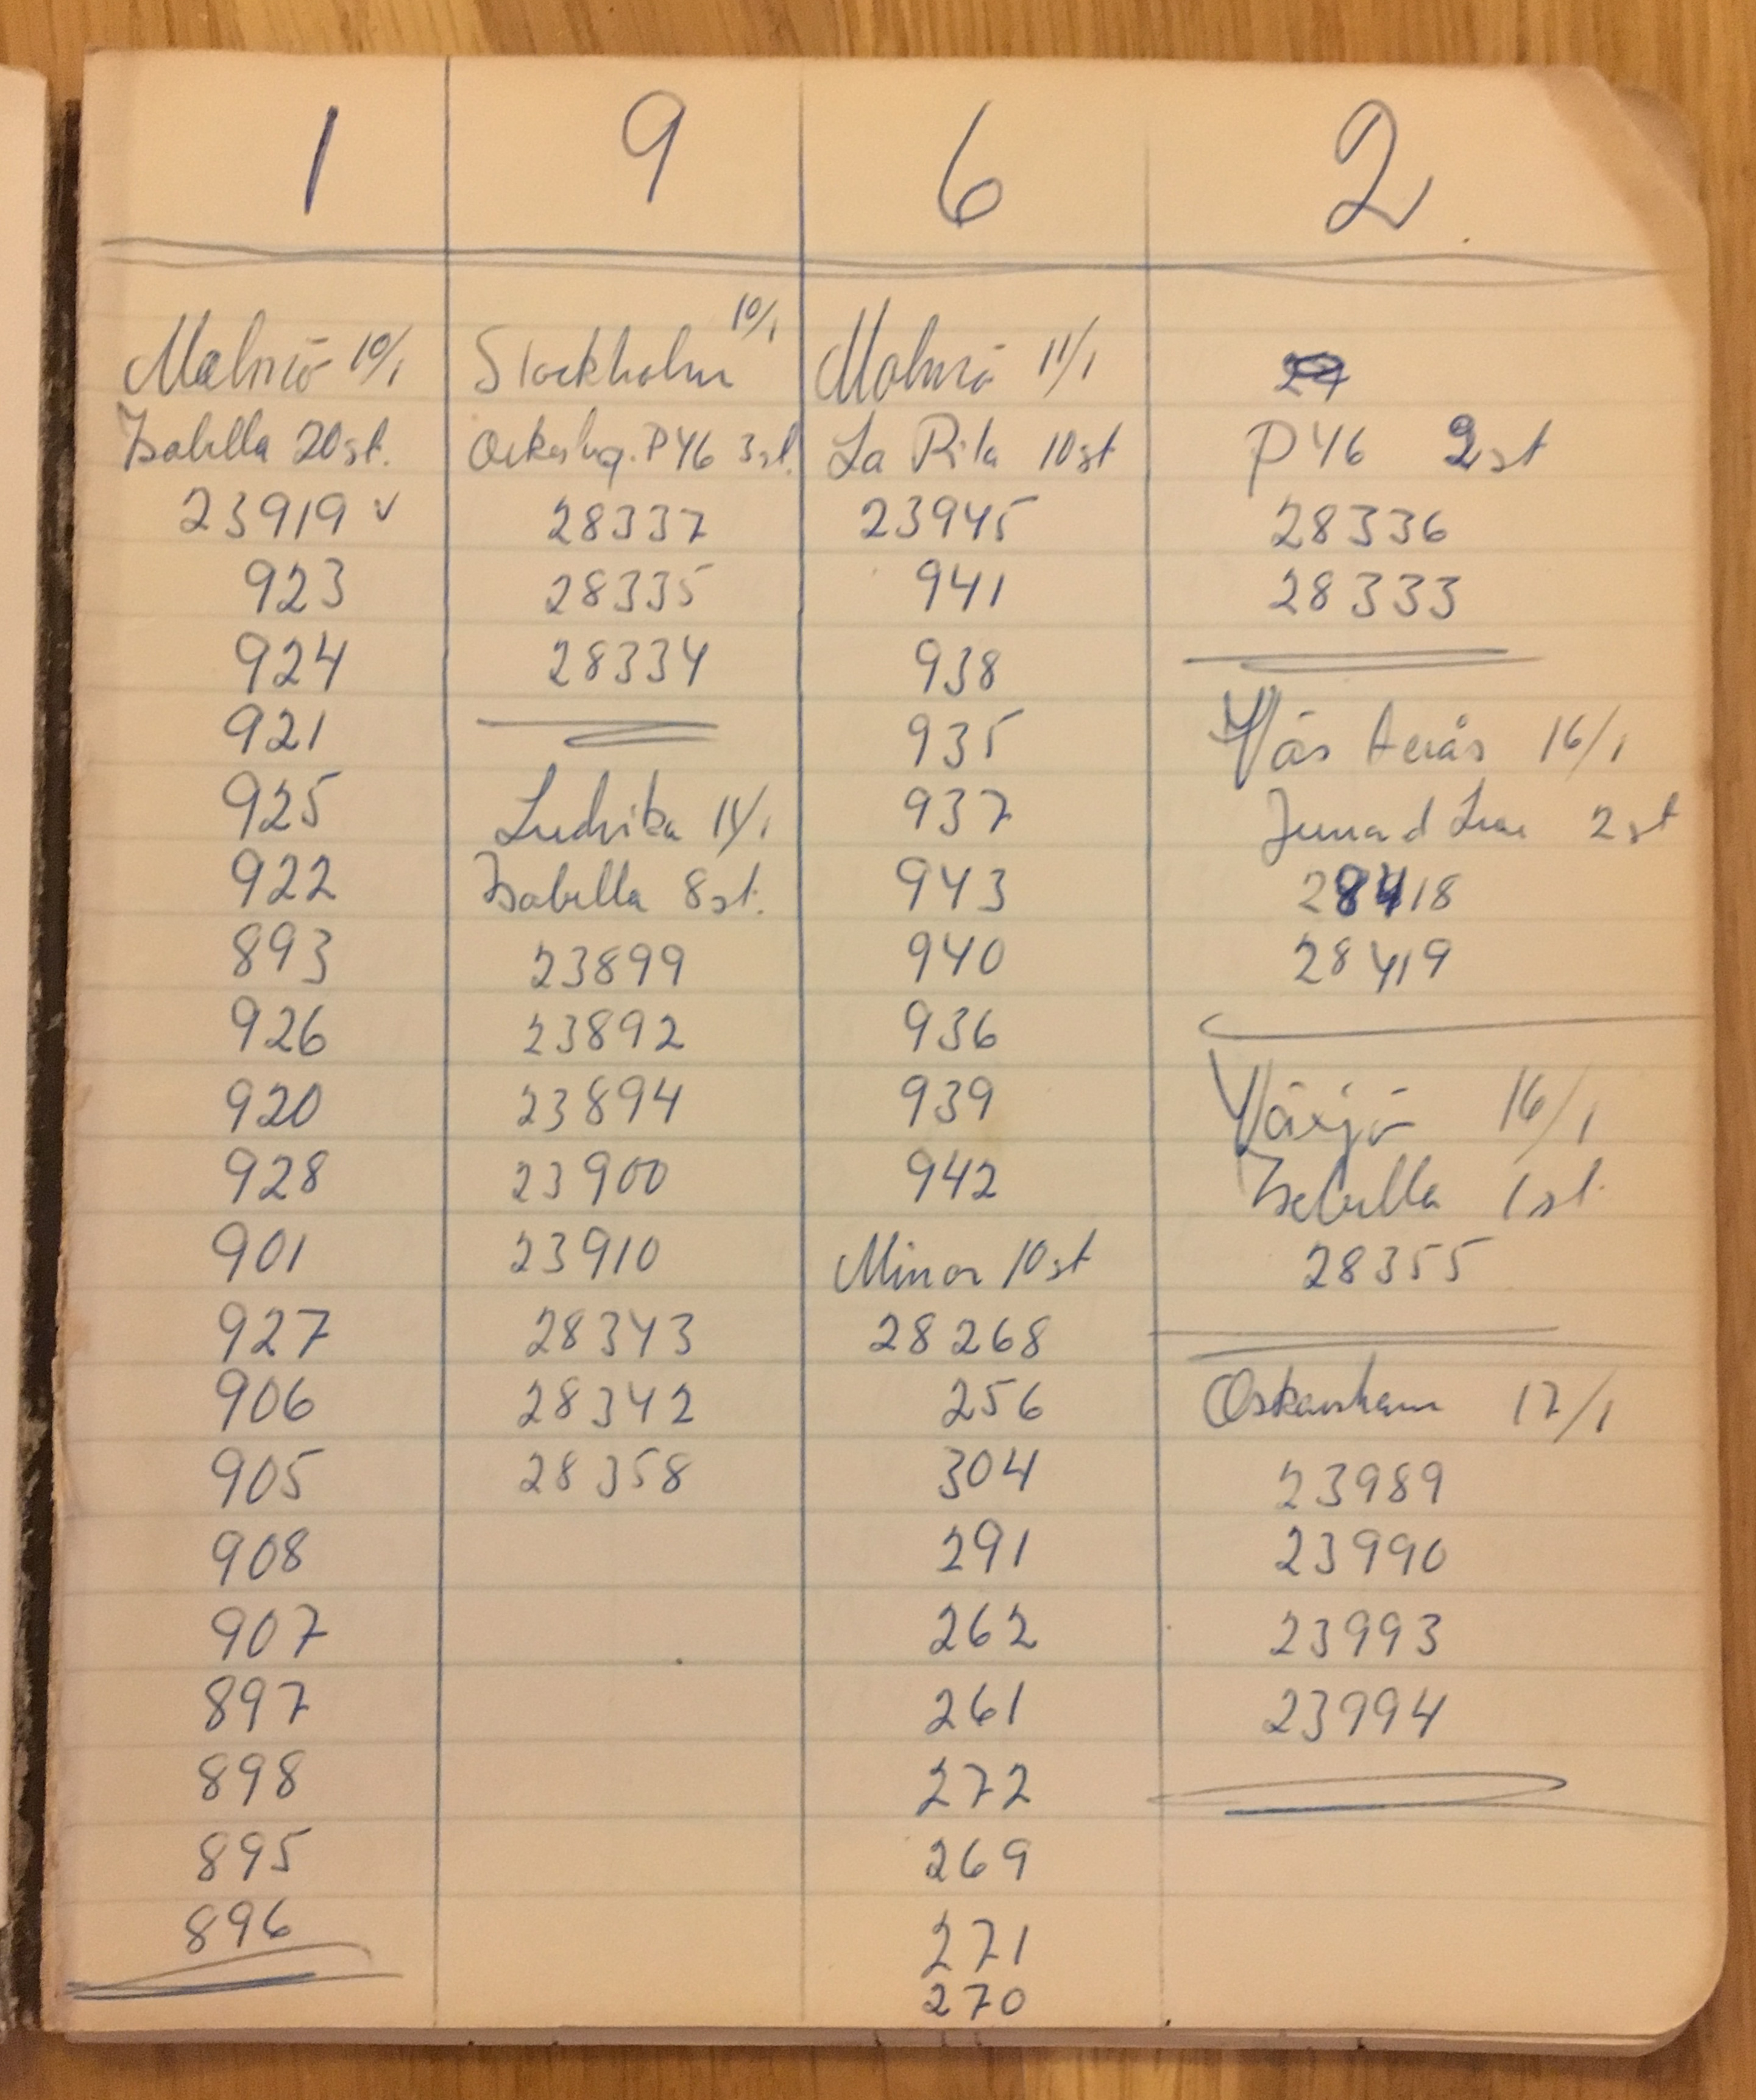 1 9 6 2
Malmö 10/1
Isabella 20 st.
23919 v
923
924
921
925
922
893
926
920
928
901
927
906
905
908
907
897
898
895
896
Stockholm 10/1
P46 3 st.
28337
28335
28334
Ludvika 11/1
Isabella 8 st.
23899
23892
23894
23900
23910
28343
28342
28358
Malmö 11/1
La Rita 10 st
23945
941
938
935
937
943
940
936
939
942
Minor 10 st
28268
256
304
291
262
261
272
269
271
270
P46 2 st
28336
28333
Västerås 16/1
2 st
28418
28419
Växjö 16/1
Isabella 1 st.
28355
Oskarshamn 17/1
23989
23990
23993
23994